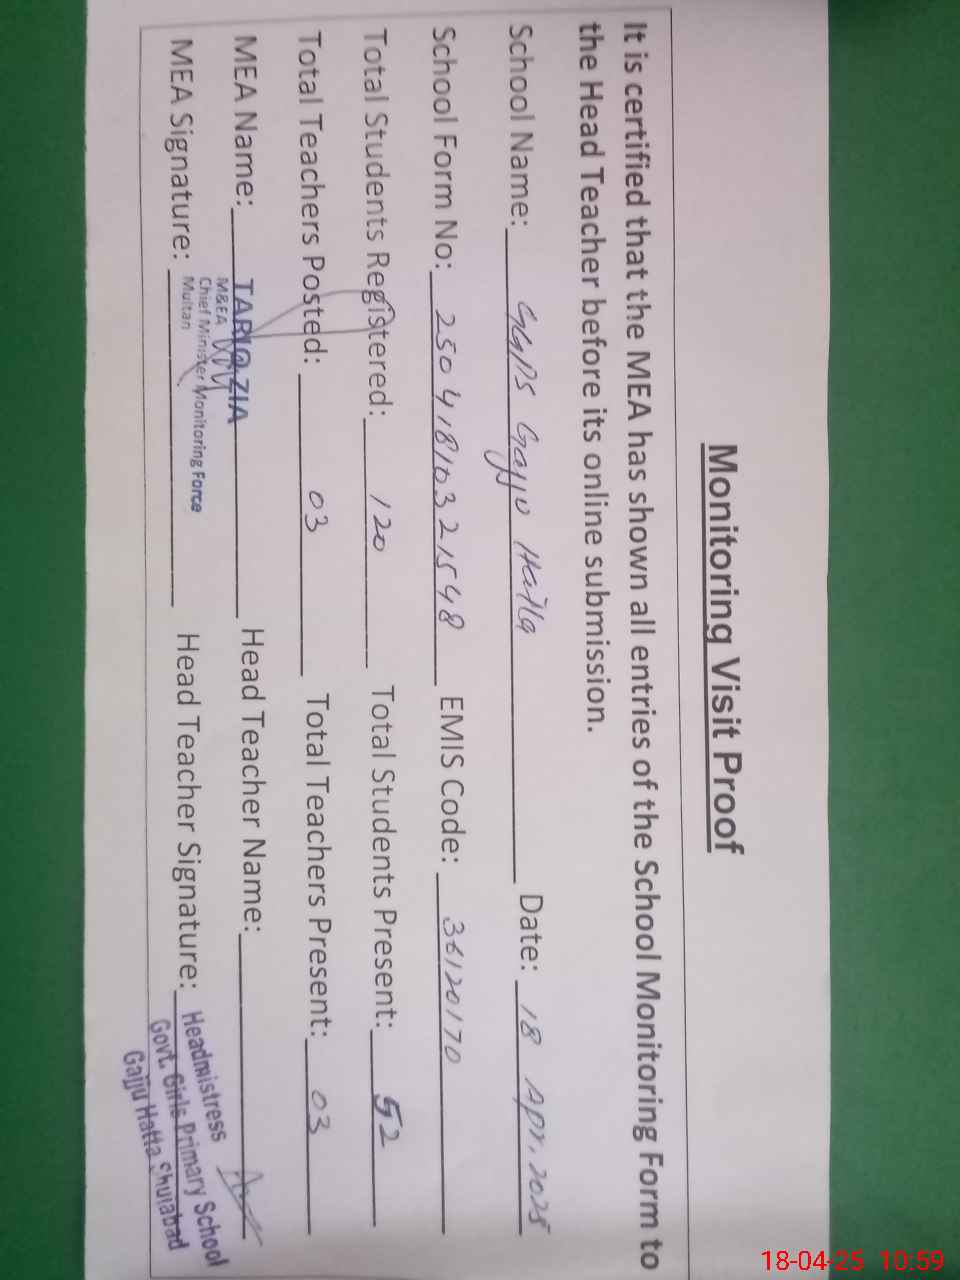 Monitoring Visit Proof
It is certified that the MEA has shown all entries of the School Monitoring Form to
the Head Teacher before its online submission.
School Name: GGPS Gajju Hatta Date: 18 Apr. 2025
School Form No: 25041816321548 EMIS Code: 36120170
Total Students Registered: 120 Total Students Present: 52
Total Teachers Posted: 03 Total Teachers Present: 03
MEA Name: TARIQ ZIA Head Teacher Name:
MEA Signature: Head Teacher Signature:
M&EA
Chief Minister Monitoring Force
Multan
Headmistress
Govt. Girls Primary School
Gajju Hatta Shujabad
18-04-25 10:59